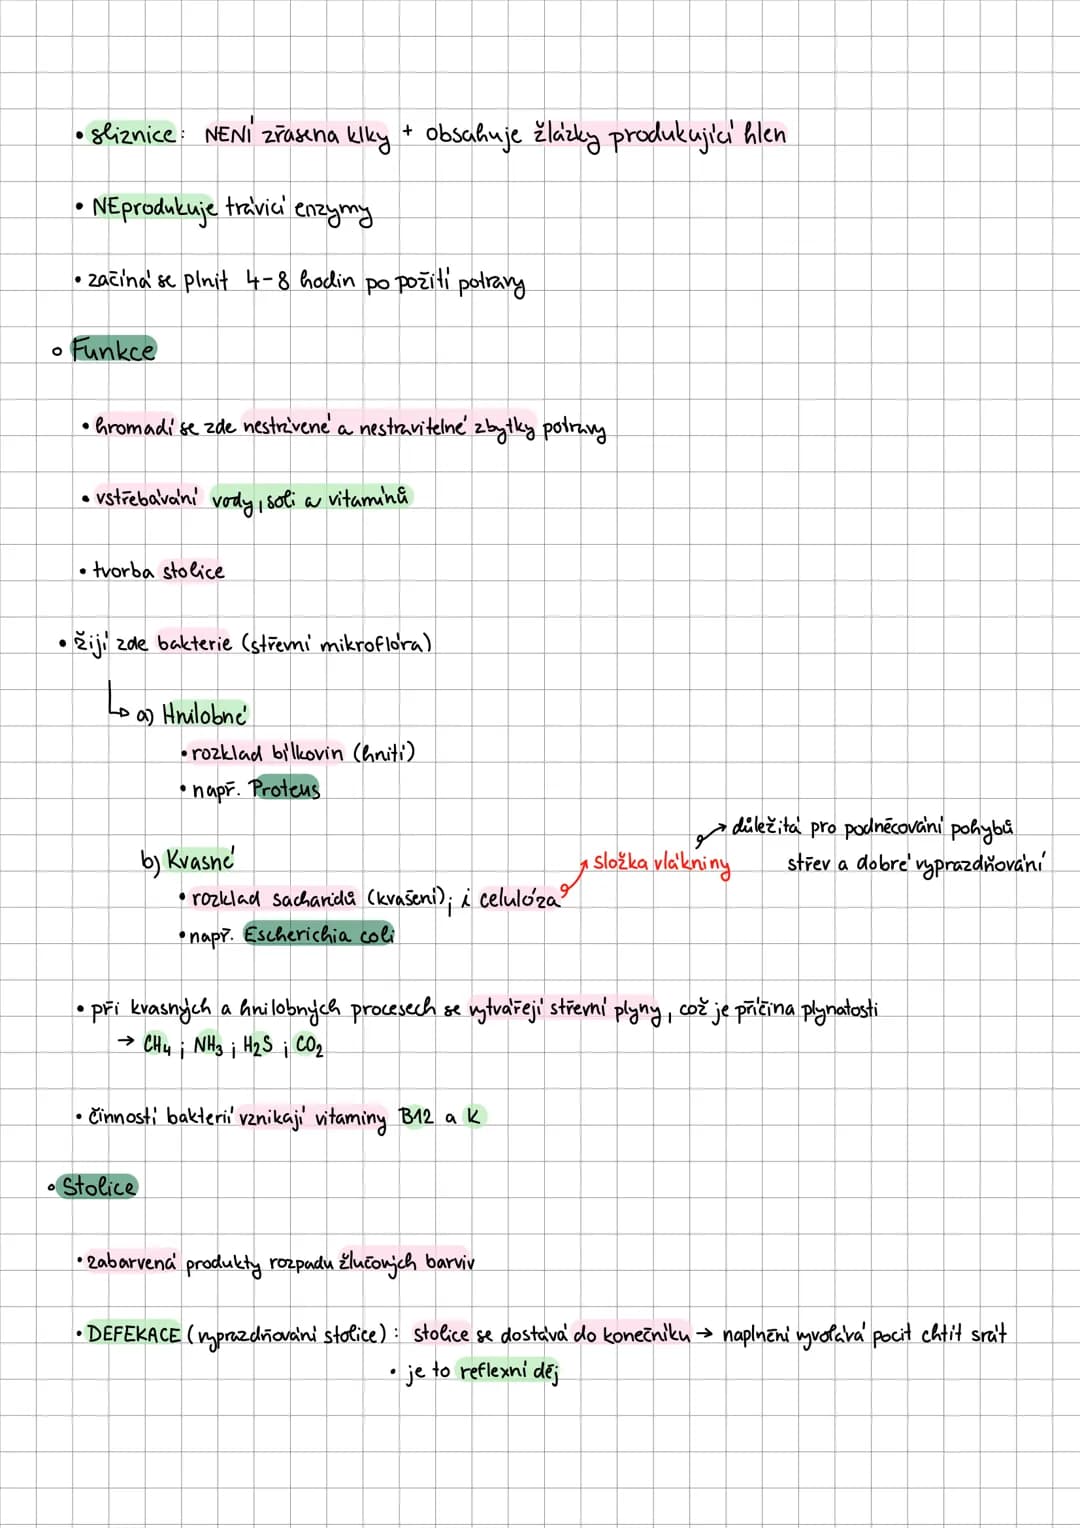 • sliznice: NENÍ zřasena klky + obsahuje žlázky produkující hlen
• NEprodukuje trávicí enzymy
• začíná se plnit 4-8 hodin po požití potravy
○ Funkce
• hromadí se zde nestrávené a nestravitelné zbytky potravy
• vstřebávání vody, soli a vitamínů
• tvorba stolice
• žijí zde bakterie (střevní mikroflóra)
↳ a) Hnilobné
• rozklad bílkovin (hnití)
• např. Proteus
→ důležitá pro podněcování pohybů
b) Kvasné → složka vlákniny střev a dobré vyprazdňování
• rozklad sacharidů (kvašení); i celulóza
• např. Escherichia coli
• při kvasných a hnilobných procesech se vytvářejí střevní plyny, což je příčina plynatosti
→ CH4 ; NH3 ; H2S ; CO2
• činností bakterií vznikají vitaminy B12 a K
○ Stolice
• zabarvená produkty rozpadu žlučových barviv
• DEFEKACE (vyprazdňování stolice): stolice se dostává do konečníku → naplnění vyvolává pocit chtít srát
• je to reflexní děj